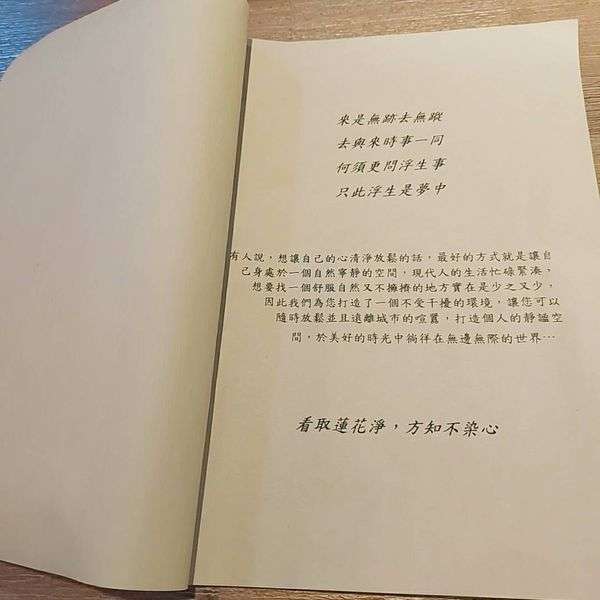 來是無跡去無蹤
去與來時事一同
何須更問浮生事
只此浮生是夢中
有人說，想讓自己的心清淨放鬆的話，最好的方式就是讓自
己身處於一個自然寧靜的空間，現代人的生活忙碌緊湊，
想要找一個舒服自然又不擁擠的地方實在是少之又少，
因此我們為您打造了一個不受干擾的環境，讓您可以
隨時放鬆並且遠離城市的喧囂，打造個人的靜謐空
間，於美好的時光中徜徉在無邊無際的世界…
看取蓮花淨，方知不染心